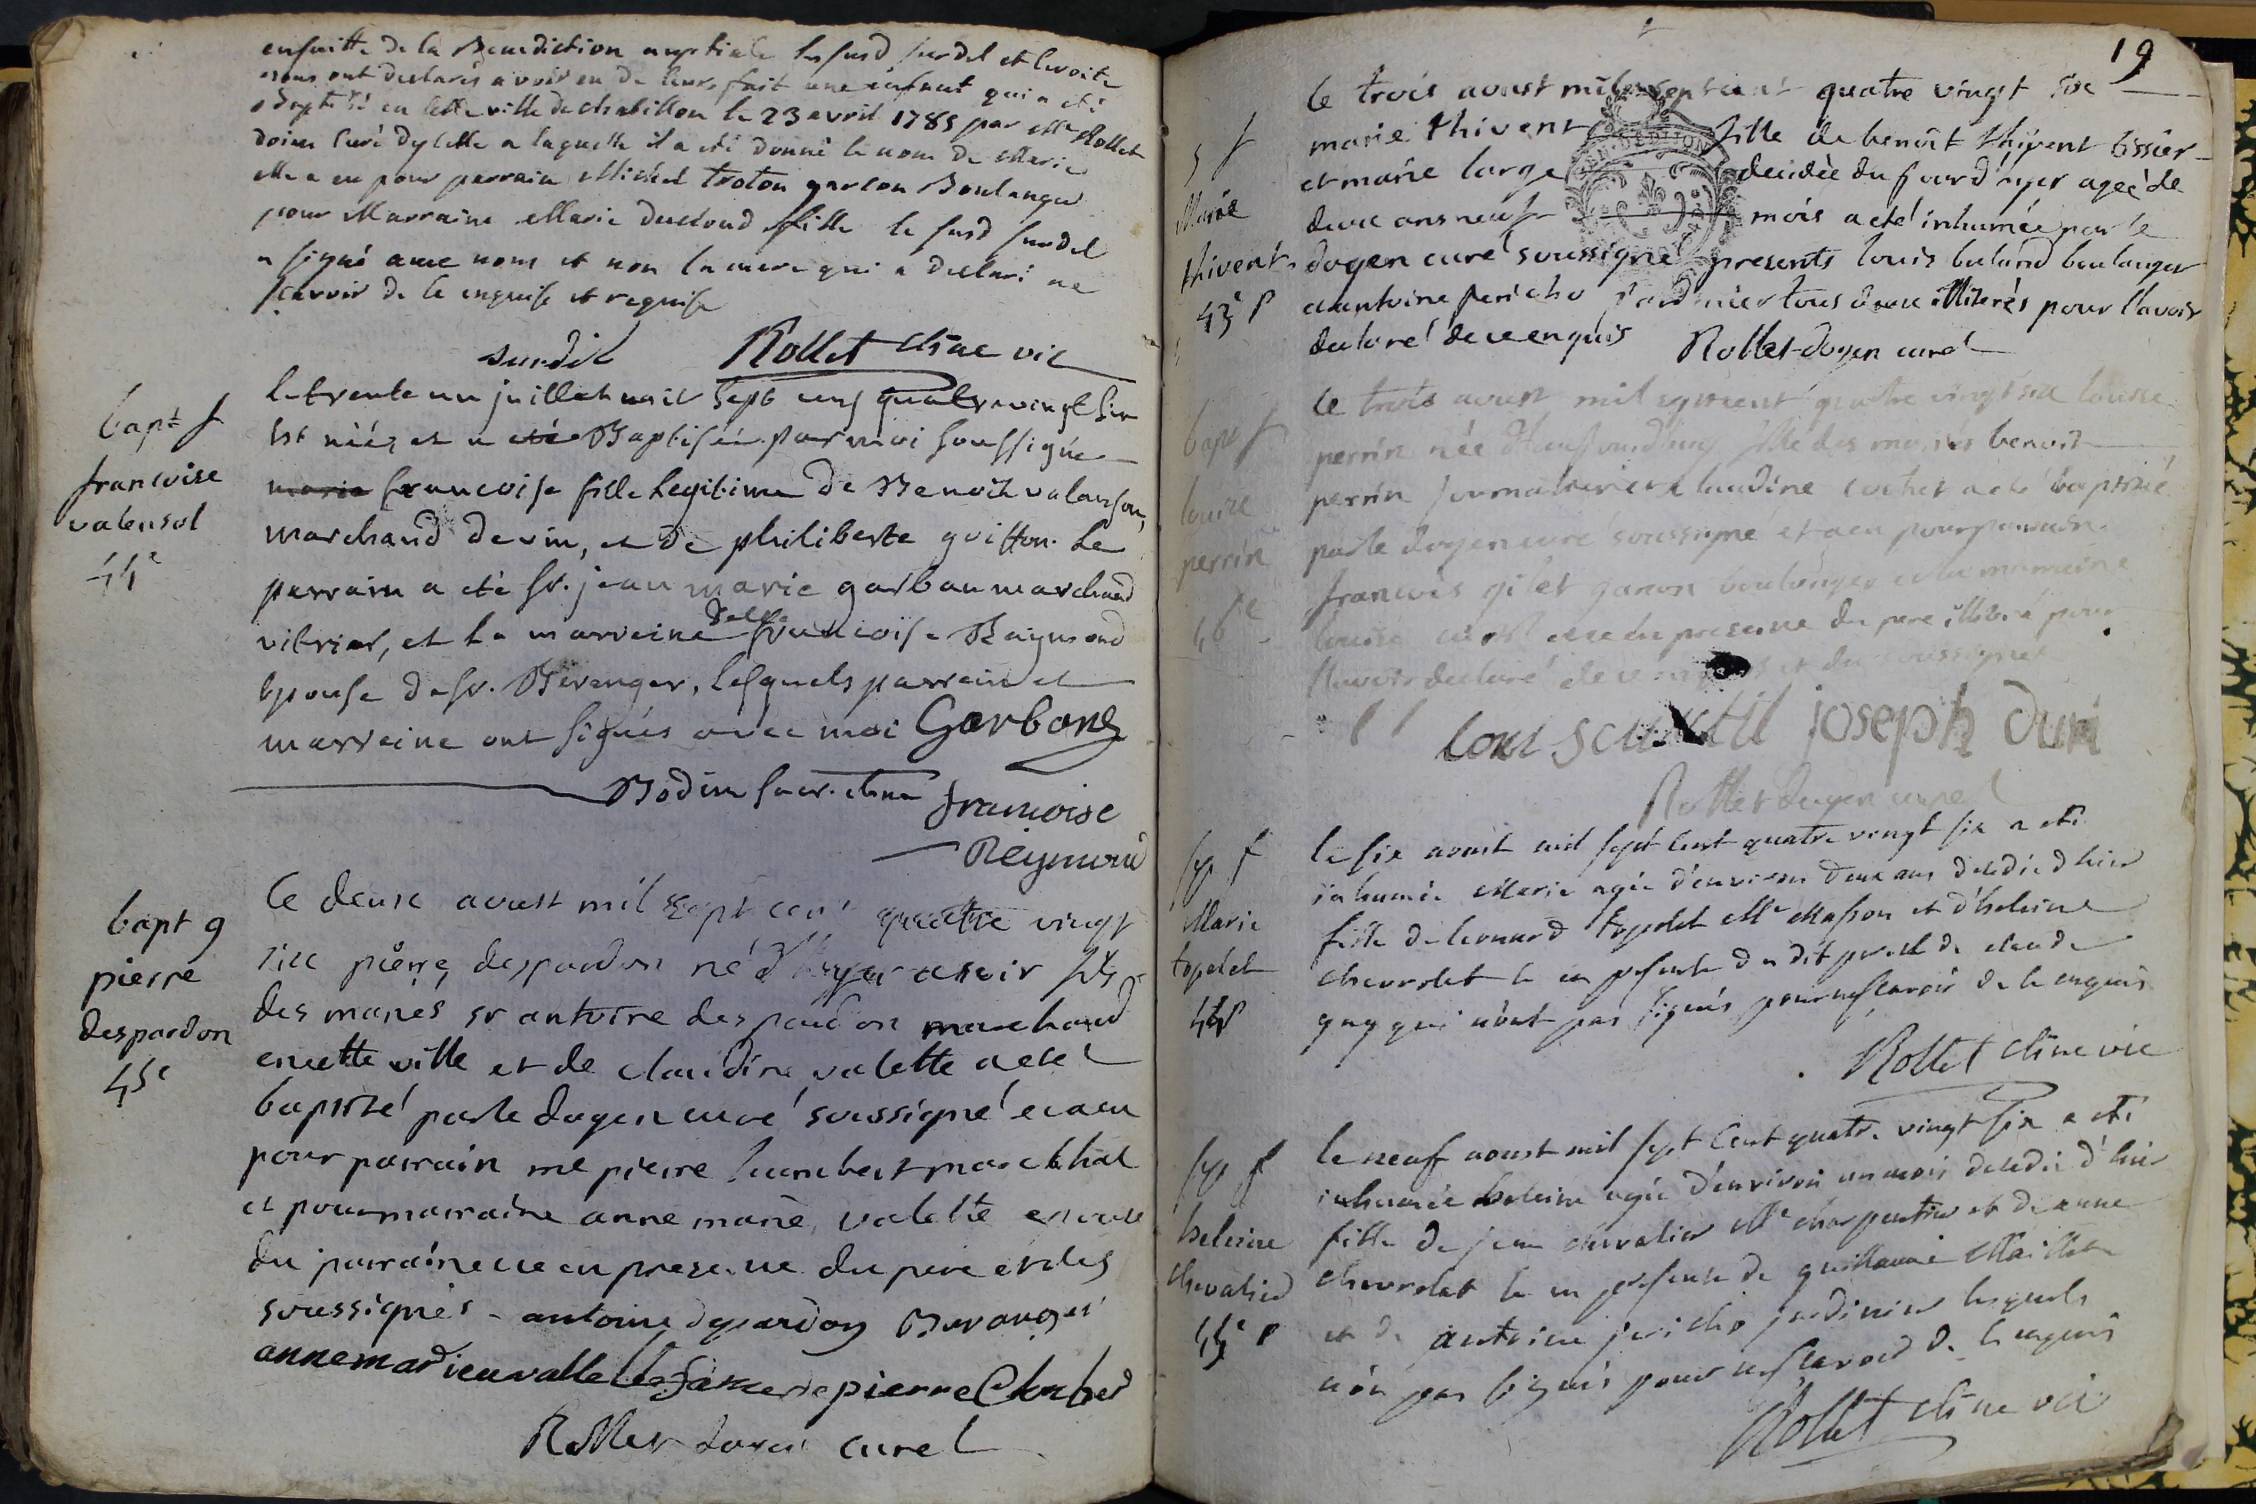 ensuitte de la Benediction nuptiale les susd surdil et
nous ont declarés avoir eu de leurs fait une enfant qui a eté
Baptisé en cette ville de chatillon le 23 avril 1785 par Mr Rollet
doien Curé dycelle a laquelle il a eté donné le nom de Marie
elle a eu pour parrain Michel troton garçon Boulanger
pour Marraine Marie ducloud fille le susd surdil
a signé avec nous et non la mere qui a declaré ne
scavoir de ce enquise et requise
surdil Rollet chne vic
bapt f
francoise
valensol
44e
le trente un juillet mil sept cens quatre vingt six
Est née, et a eté Baptisée par moi soussigné
marie francoise fille legitime de Benoit valanson,
marchand de vin, et de philiberte guitton. Le
parrain a eté sr. jean marie garbau marchand
vitrier, et la marraine delle francoise Raymond
Epouse de sr. Béranger, lesquels parrain et
marreine ont signés avec moi Garbons
Bodin
francoise
Reymond
bapt g
pierre
despardon
45e
le deuxe aoust mil sept cent quatre vingt
six pierre despardon né d'hyer au soir fils
des mariés sr antoine despardon marchand
en cette ville et de claudine valette a eté
baptisé par le doyen curé soussigné et a eu
pour parrain me pierre humbert marechal
et pour marraine anne marie valette epouse
du parrain ce en presence du pere et des
soussignés - antoine despardon Beranger
anne marie valle pierre
Rollet doyen curé
19
s f
Marie
thivent
43e p
le trois aoust mil sept cent quatre vingt six
marie thivent fille de benoît thivent tissier
et marie large decedée du jour d'hyer ageé de
deux ans neuf mois a eté inhumée par le
doyen curé soussigné presents louis buland boulanger
et antoine pericho jardinier tous deux illiterés pour l'avoir
declaré de ce enquis Rollet doyen curé
bapt f
louise
perrin
46e
le trois aoust mil sept cent quatre vingt six louise
perrin née fille des mariés benoit
perrin journalier et claudine cochet a eté baptisée
par le doyen curé soussigné et a eu pour parrain
francois gilet garçon boulanger et la marraine
louise ce en presence du pere illiteré pour
l'avoir declaré de ce enquis et du soussigné
joseph duri
Rollet doyen curé
sep f
Marie
topelet
44e p
le six aoust mil sept cent quatre vingt six a eté
inhumée Marie agée d'environ deux ans decedée d'hier
fille de leonard topelet Me Masson et d'heleine
chevrolet le en presence du dit pere et de claude
guy qui n'ont pas signés pour ne scavoir de ce enquis
Rollet chne vic
sep f
heleine
chevalier
45e p
le neuf aoust mil sept Cent quatre vingt six a eté
inhumée heleine agée d'environ un mois decedée d'hier
fille de jean chevalier Me charpentier et de anne
chevrolet le en presence de guillaume Maillet
et de antoine jericho jardinier lesquels
n'on pas signés pour ne scavoir de ce enquis
Rollet chne vic